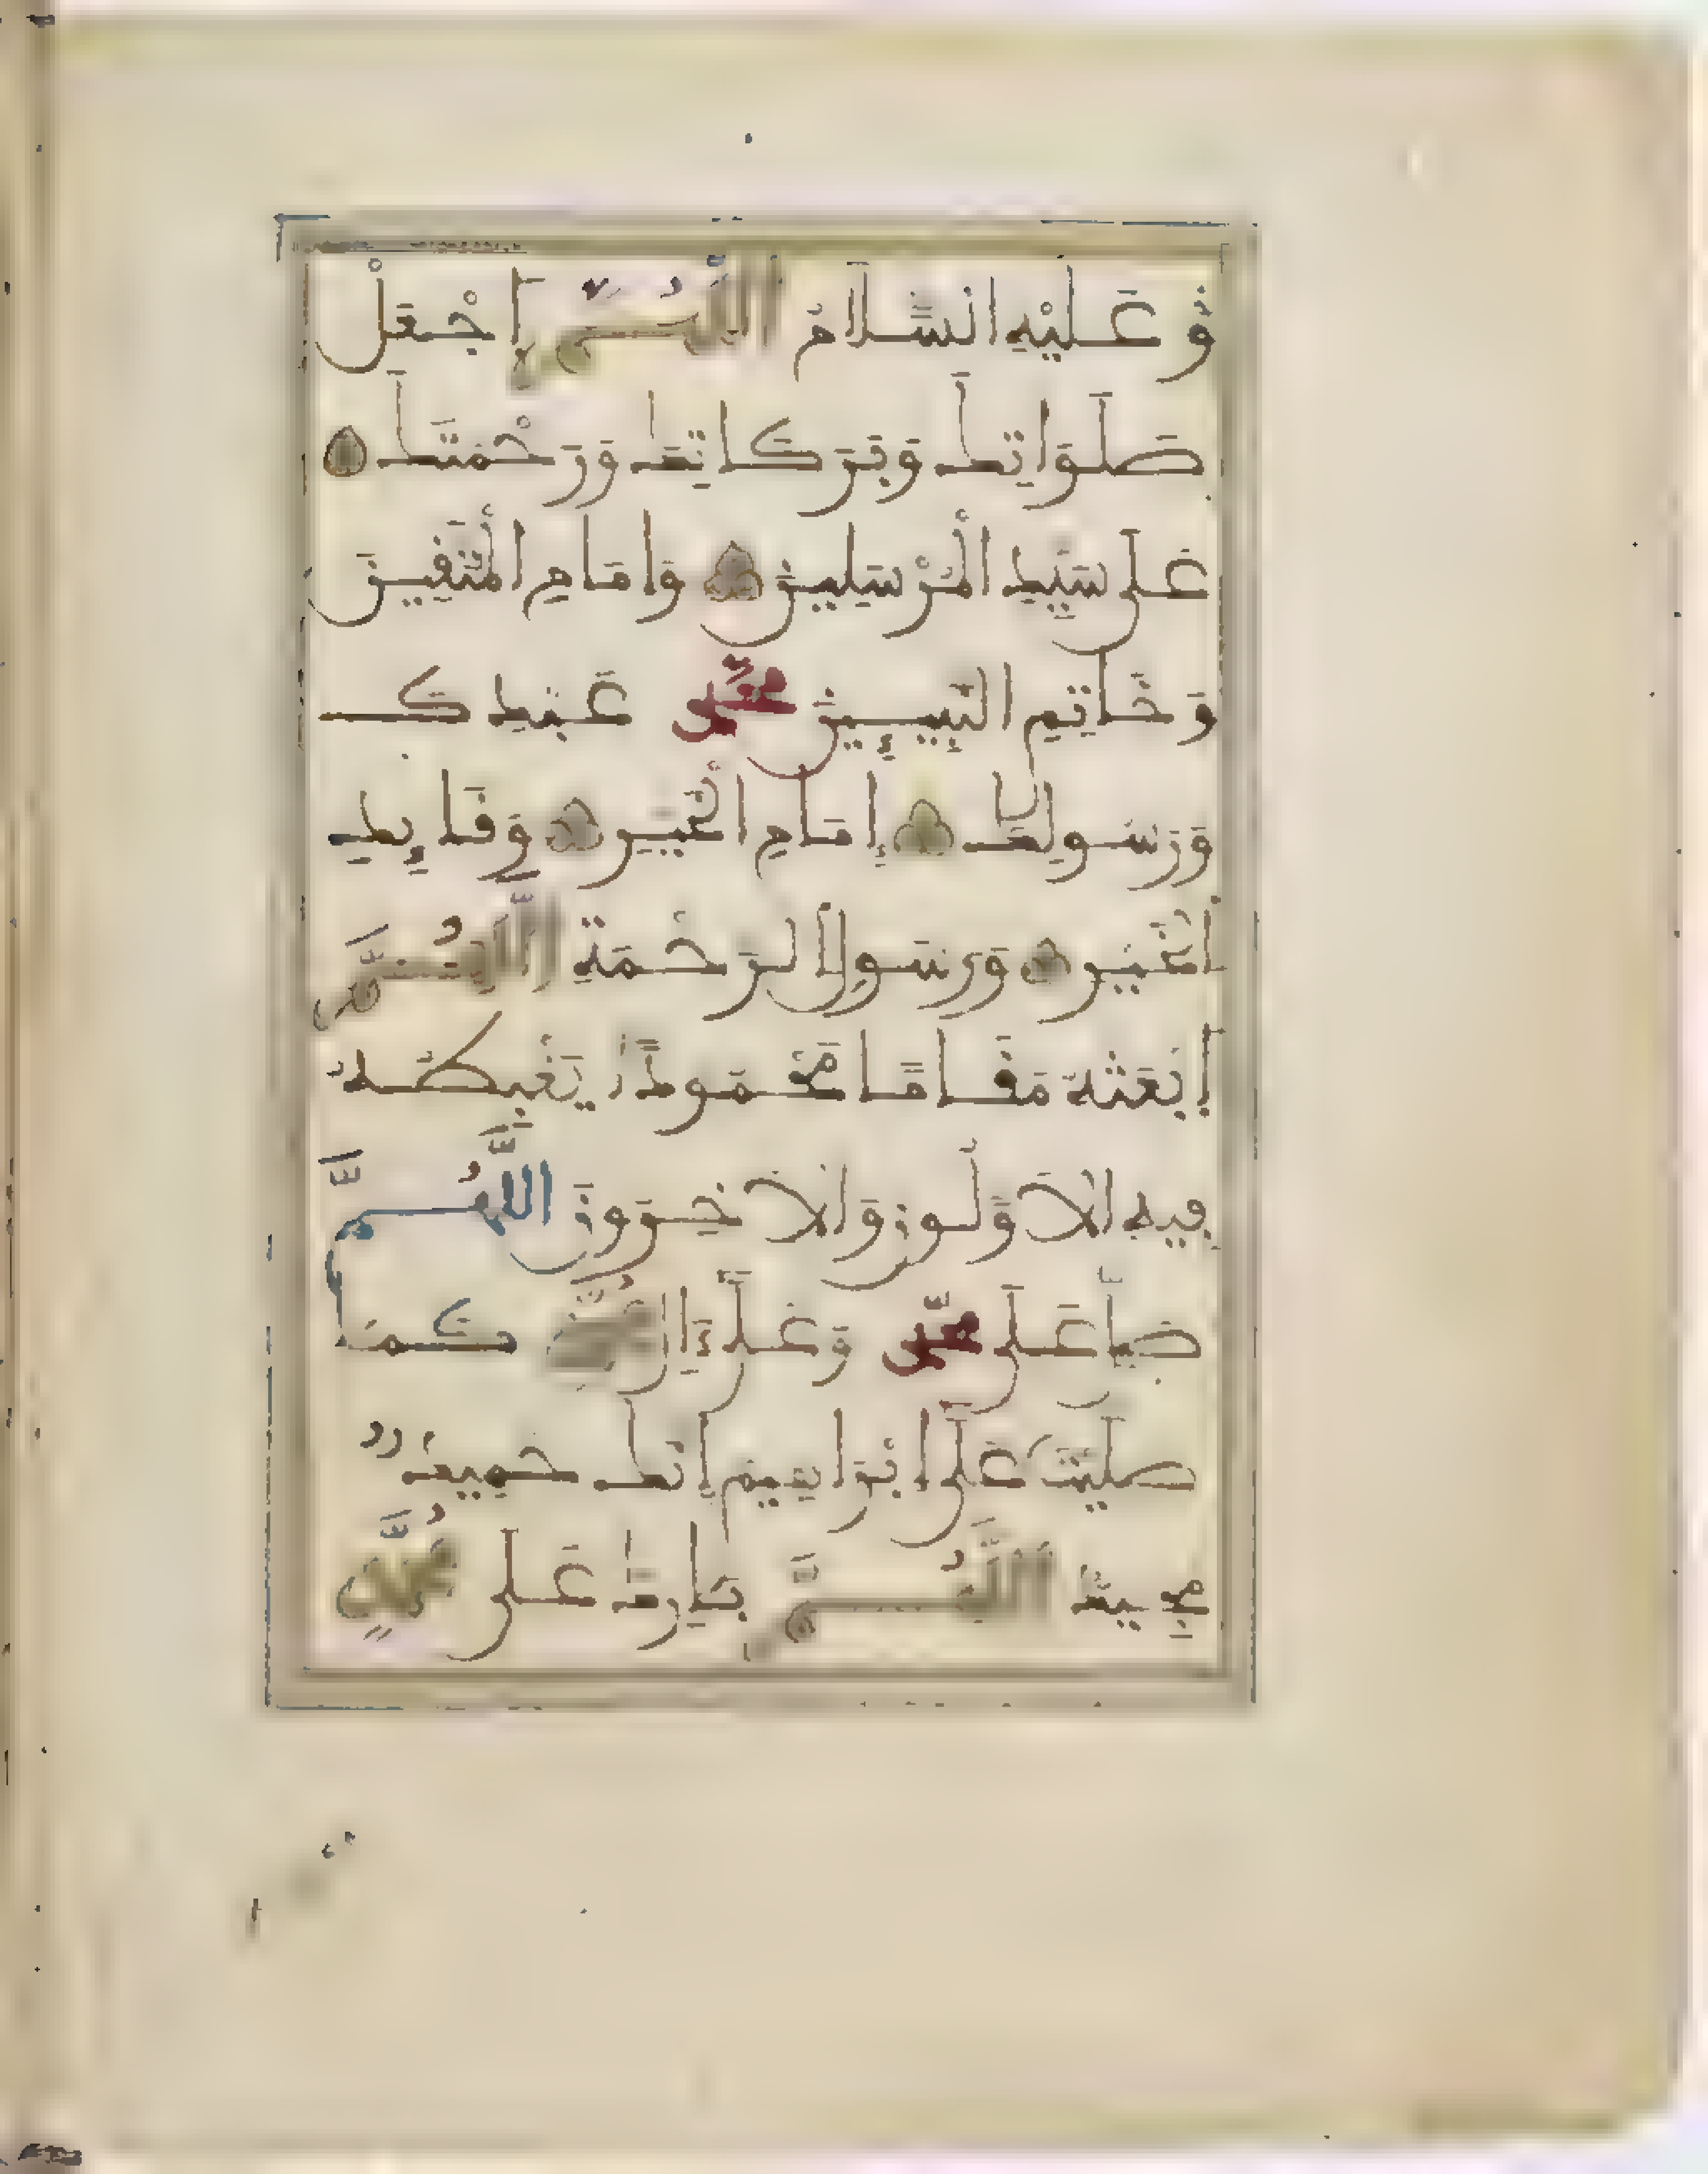 وَعَلَيْهِ السَّلَامُ اللَّهُمَّ اجْعَلْ
صَلَوَاتِكَ وَبَرَكَاتِكَ وَرَحْمَتَكَ
عَلَى سَيِّدِ الْمُرْسَلِينَ وَإِمَامِ الْمُتَّقِينَ
وَخَاتِمِ النَّبِيِّينَ مُحَمَّدٍ عَبْدِكَ
وَرَسُولِكَ إِمَامِ الْخَيْرِ وَقَائِدِ
الْخَيْرِ وَرَسُولِ الرَّحْمَةِ اللَّهُمَّ
ابْعَثْهُ مَقَامًا مَحْمُودًا يَغْبِطُهُ
فِيهِ الْأَوَّلُونَ وَالْآخِرُونَ اللَّهُمَّ
صَلِّ عَلَى مُحَمَّدٍ وَعَلَى ءَالِ مُحَمَّدٍ كَمَا
صَلَّيْتَ عَلَى إِبْرَاهِيمَ إِنَّكَ حَمِيدٌ
مَجِيدٌ اللَّهُمَّ بَارِكْ عَلَى مُحَمَّدٍ